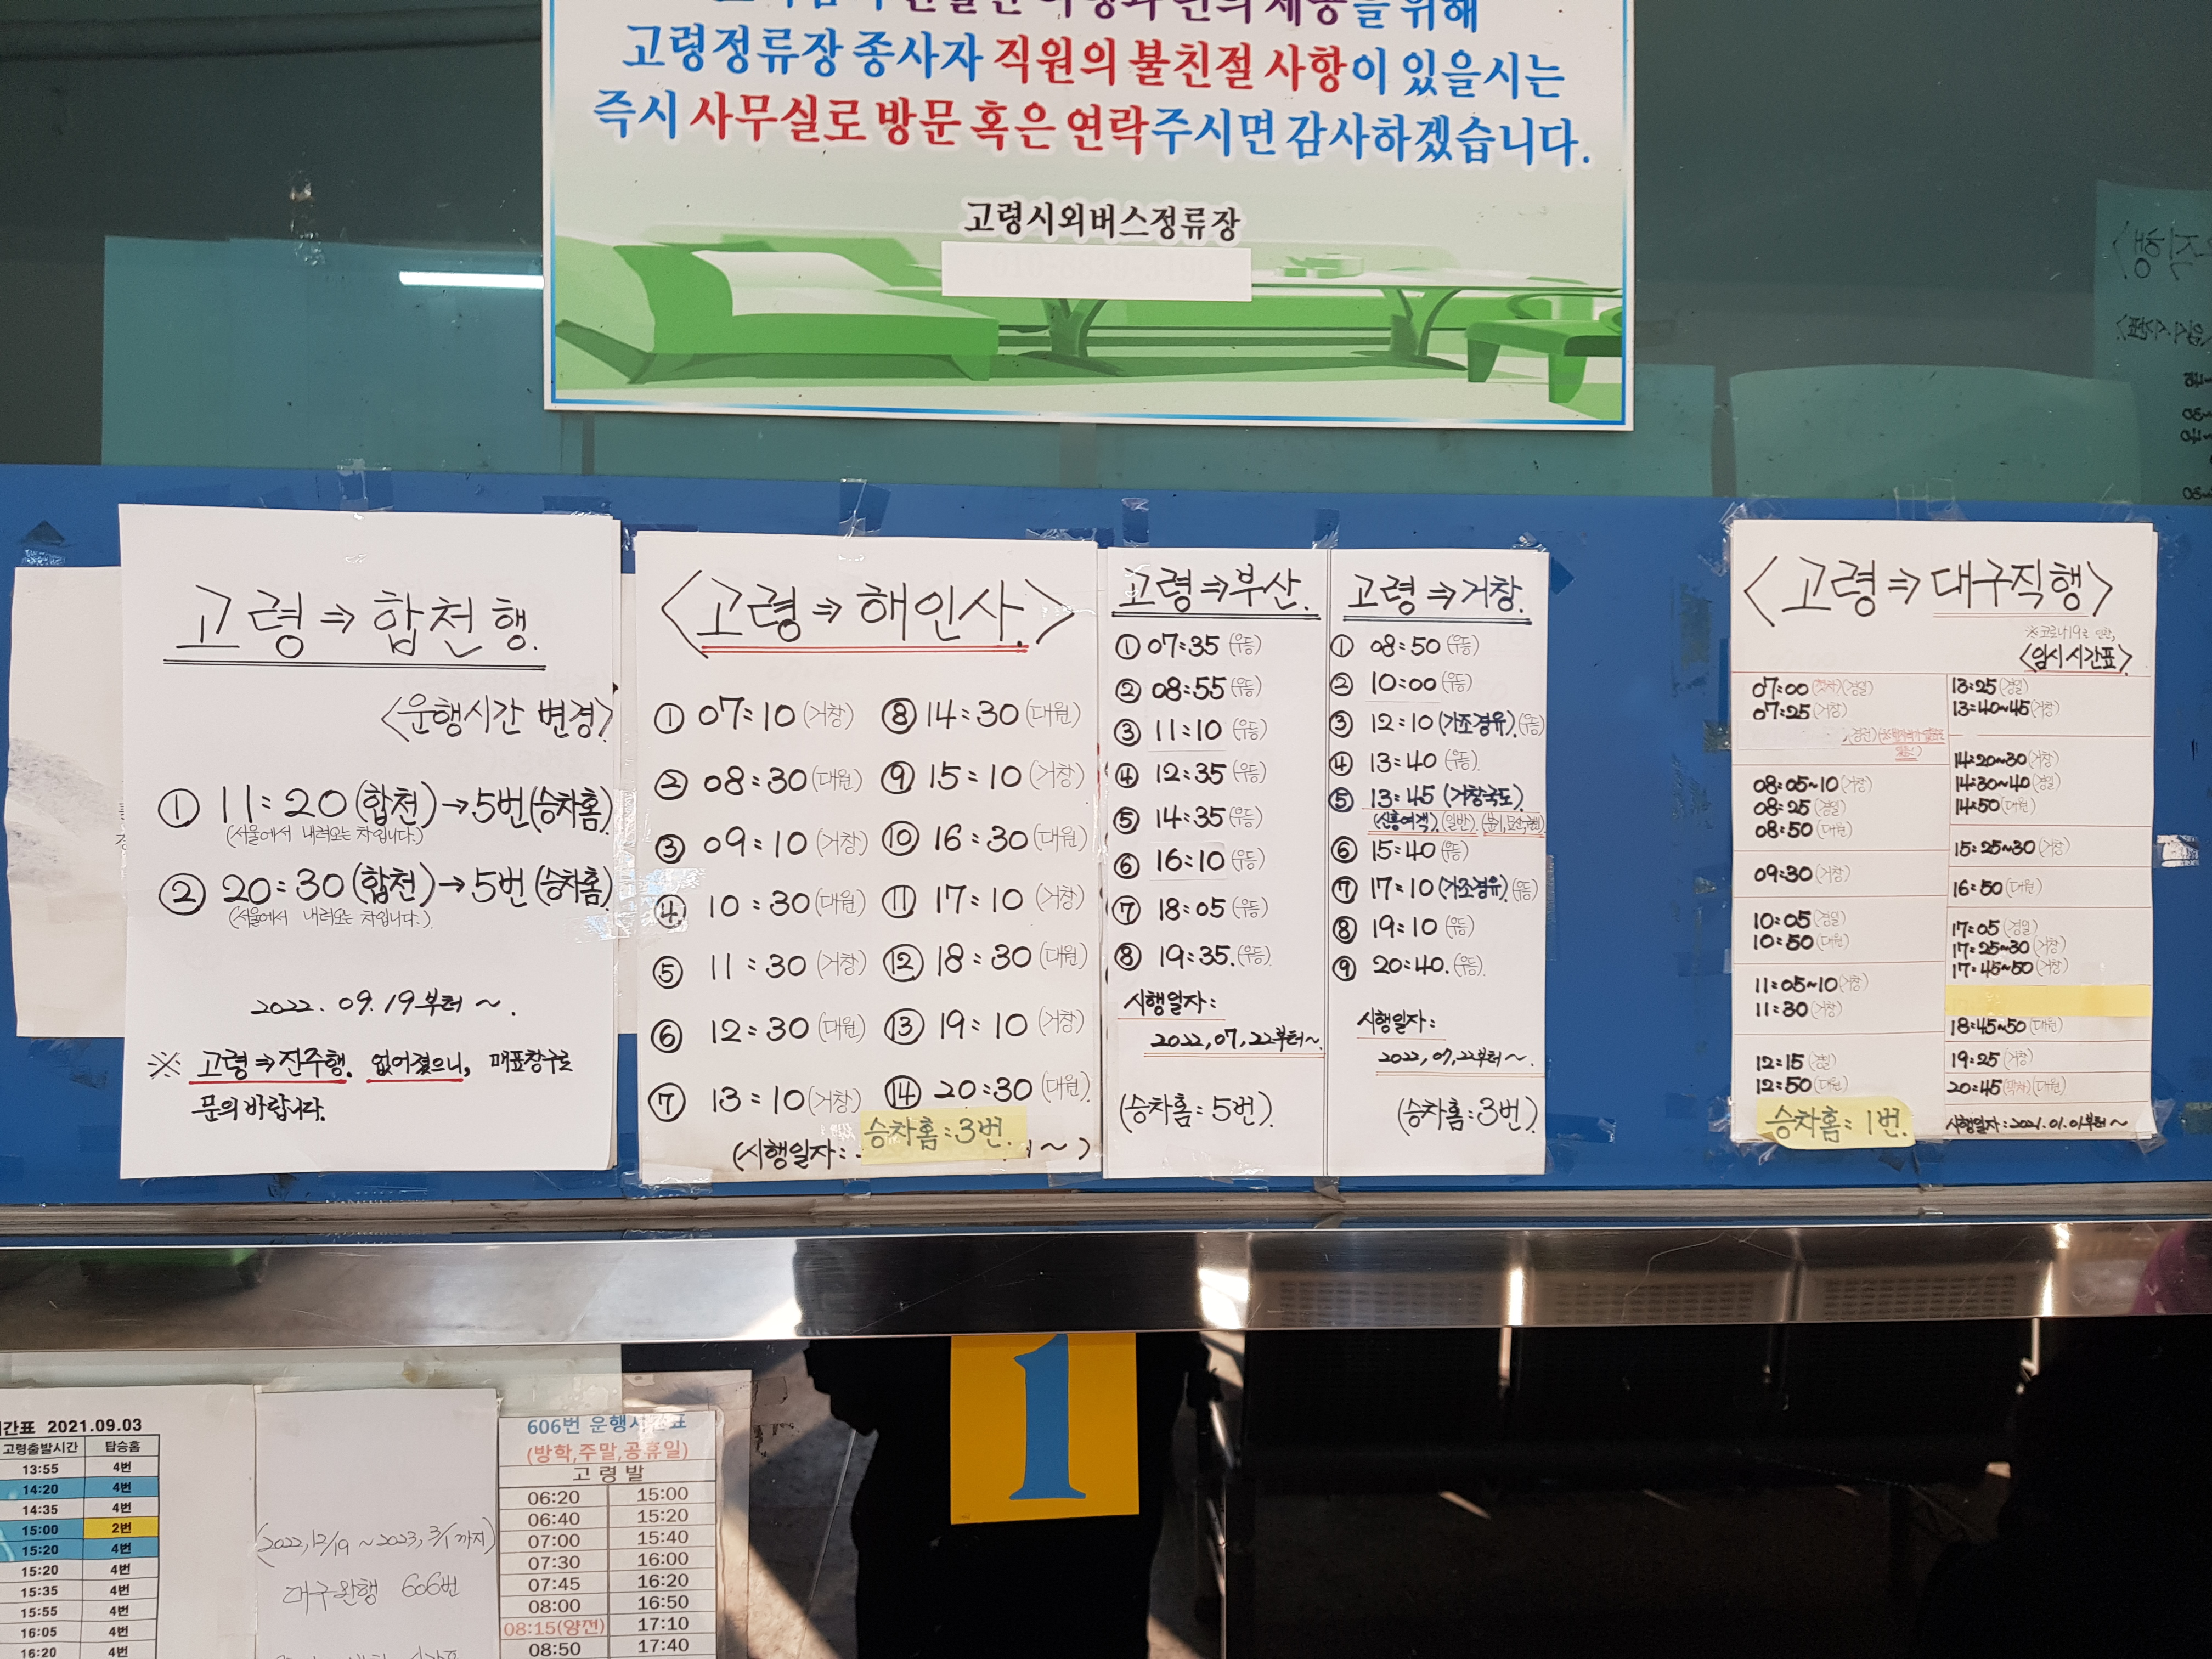 고령정류장 종사자 직원의 불친절 사항이 있을시는
즉시 사무실로 방문 혹은 연락주시면 감사하겠습니다.
고령시외버스정류장
고령⇒합천행.
<운행시간 변경>
① 11:20(합천)→5번(승차홈)
(서울에서 내려오는 차입니다.)
② 20:30(합천)→5번(승차홈)
(서울에서 내려오는 차입니다.)
2022. 09. 19부터~.
※ 고령⇒진주행. 없어졌으니, 매표창구로
문의 바랍니다.
<고령⇒해인사.>
① 07:10(거창) ⑧ 14:30(대원)
② 08:30(대원) ⑨ 15:10(거창)
③ 09:10(거창) ⑩ 16:30(대원)
④ 10:30(대원) ⑪ 17:10(거창)
⑤ 11:30(거창) ⑫ 18:30(대원)
⑥ 12:30(대원) ⑬ 19:10(거창)
⑦ 13:10(거창) ⑭ 20:30(대원)
승차홈:3번.
(시행일자: ~)
고령⇒부산.
① 07:35(우등)
② 08:55(우등)
③ 11:10(우등)
④ 12:35(우등)
⑤ 14:35(우등)
⑥ 16:10(우등)
⑦ 18:05(우등)
⑧ 19:35.(우등)
시행일자:
2022, 07, 22부터~.
(승차홈:5번).
고령⇒거창.
① 08:50(우등)
② 10:00(우등)
③ 12:10(가조경유).(우등)
④ 13:40(우등).
⑤ 13:45(거창국도).
(신흥여객).(일반).
⑥ 15:40(우등)
⑦ 17:10(가조경유).(우등)
⑧ 19:10(우등)
⑨ 20:40.(우등).
시행일자:
2022, 07, 22부터~.
(승차홈:3번).
<고령⇒대구직행>
※코로나19로 인한,
<임시시간표>
07:00(첫차)(경일)
07:25(거창)
08:05~10(거창)
08:25(경일)
08:50(대원)
09:30(거창)
10:05(경일)
10:50(대원)
11:05~10(거창)
11:30(거창)
12:15(경일)
12:50(대원)
승차홈:1번.
13:25(경일)
13:40~45(거창)
14:20~30(거창)
14:30~40(경일)
14:50(대원)
15:25~30(거창)
16:50(대원)
17:05(경일)
17:25~30(거창)
17:45~50(거창)
18:45~50(대원)
19:25(거창)
20:45(막차)(대원)
시행일자:2021.01.01부터~
1
간표 2021.09.03
고령출발시간 탑승홈
13:55 4번
14:20 4번
14:35 4번
15:00 2번
15:20 4번
15:20 4번
15:35 4번
15:55 4번
16:05 4번
16:20 4번
(2022, 12/19 ~ 2023, 3/1까지)
대구완행 606번
606번 운행시간표
(방학,주말,공휴일)
고령발
06:20 15:00
06:40 15:20
07:00 15:40
07:30 16:00
07:45 16:20
08:00 16:50
08:15(양전) 17:10
08:50 17:40